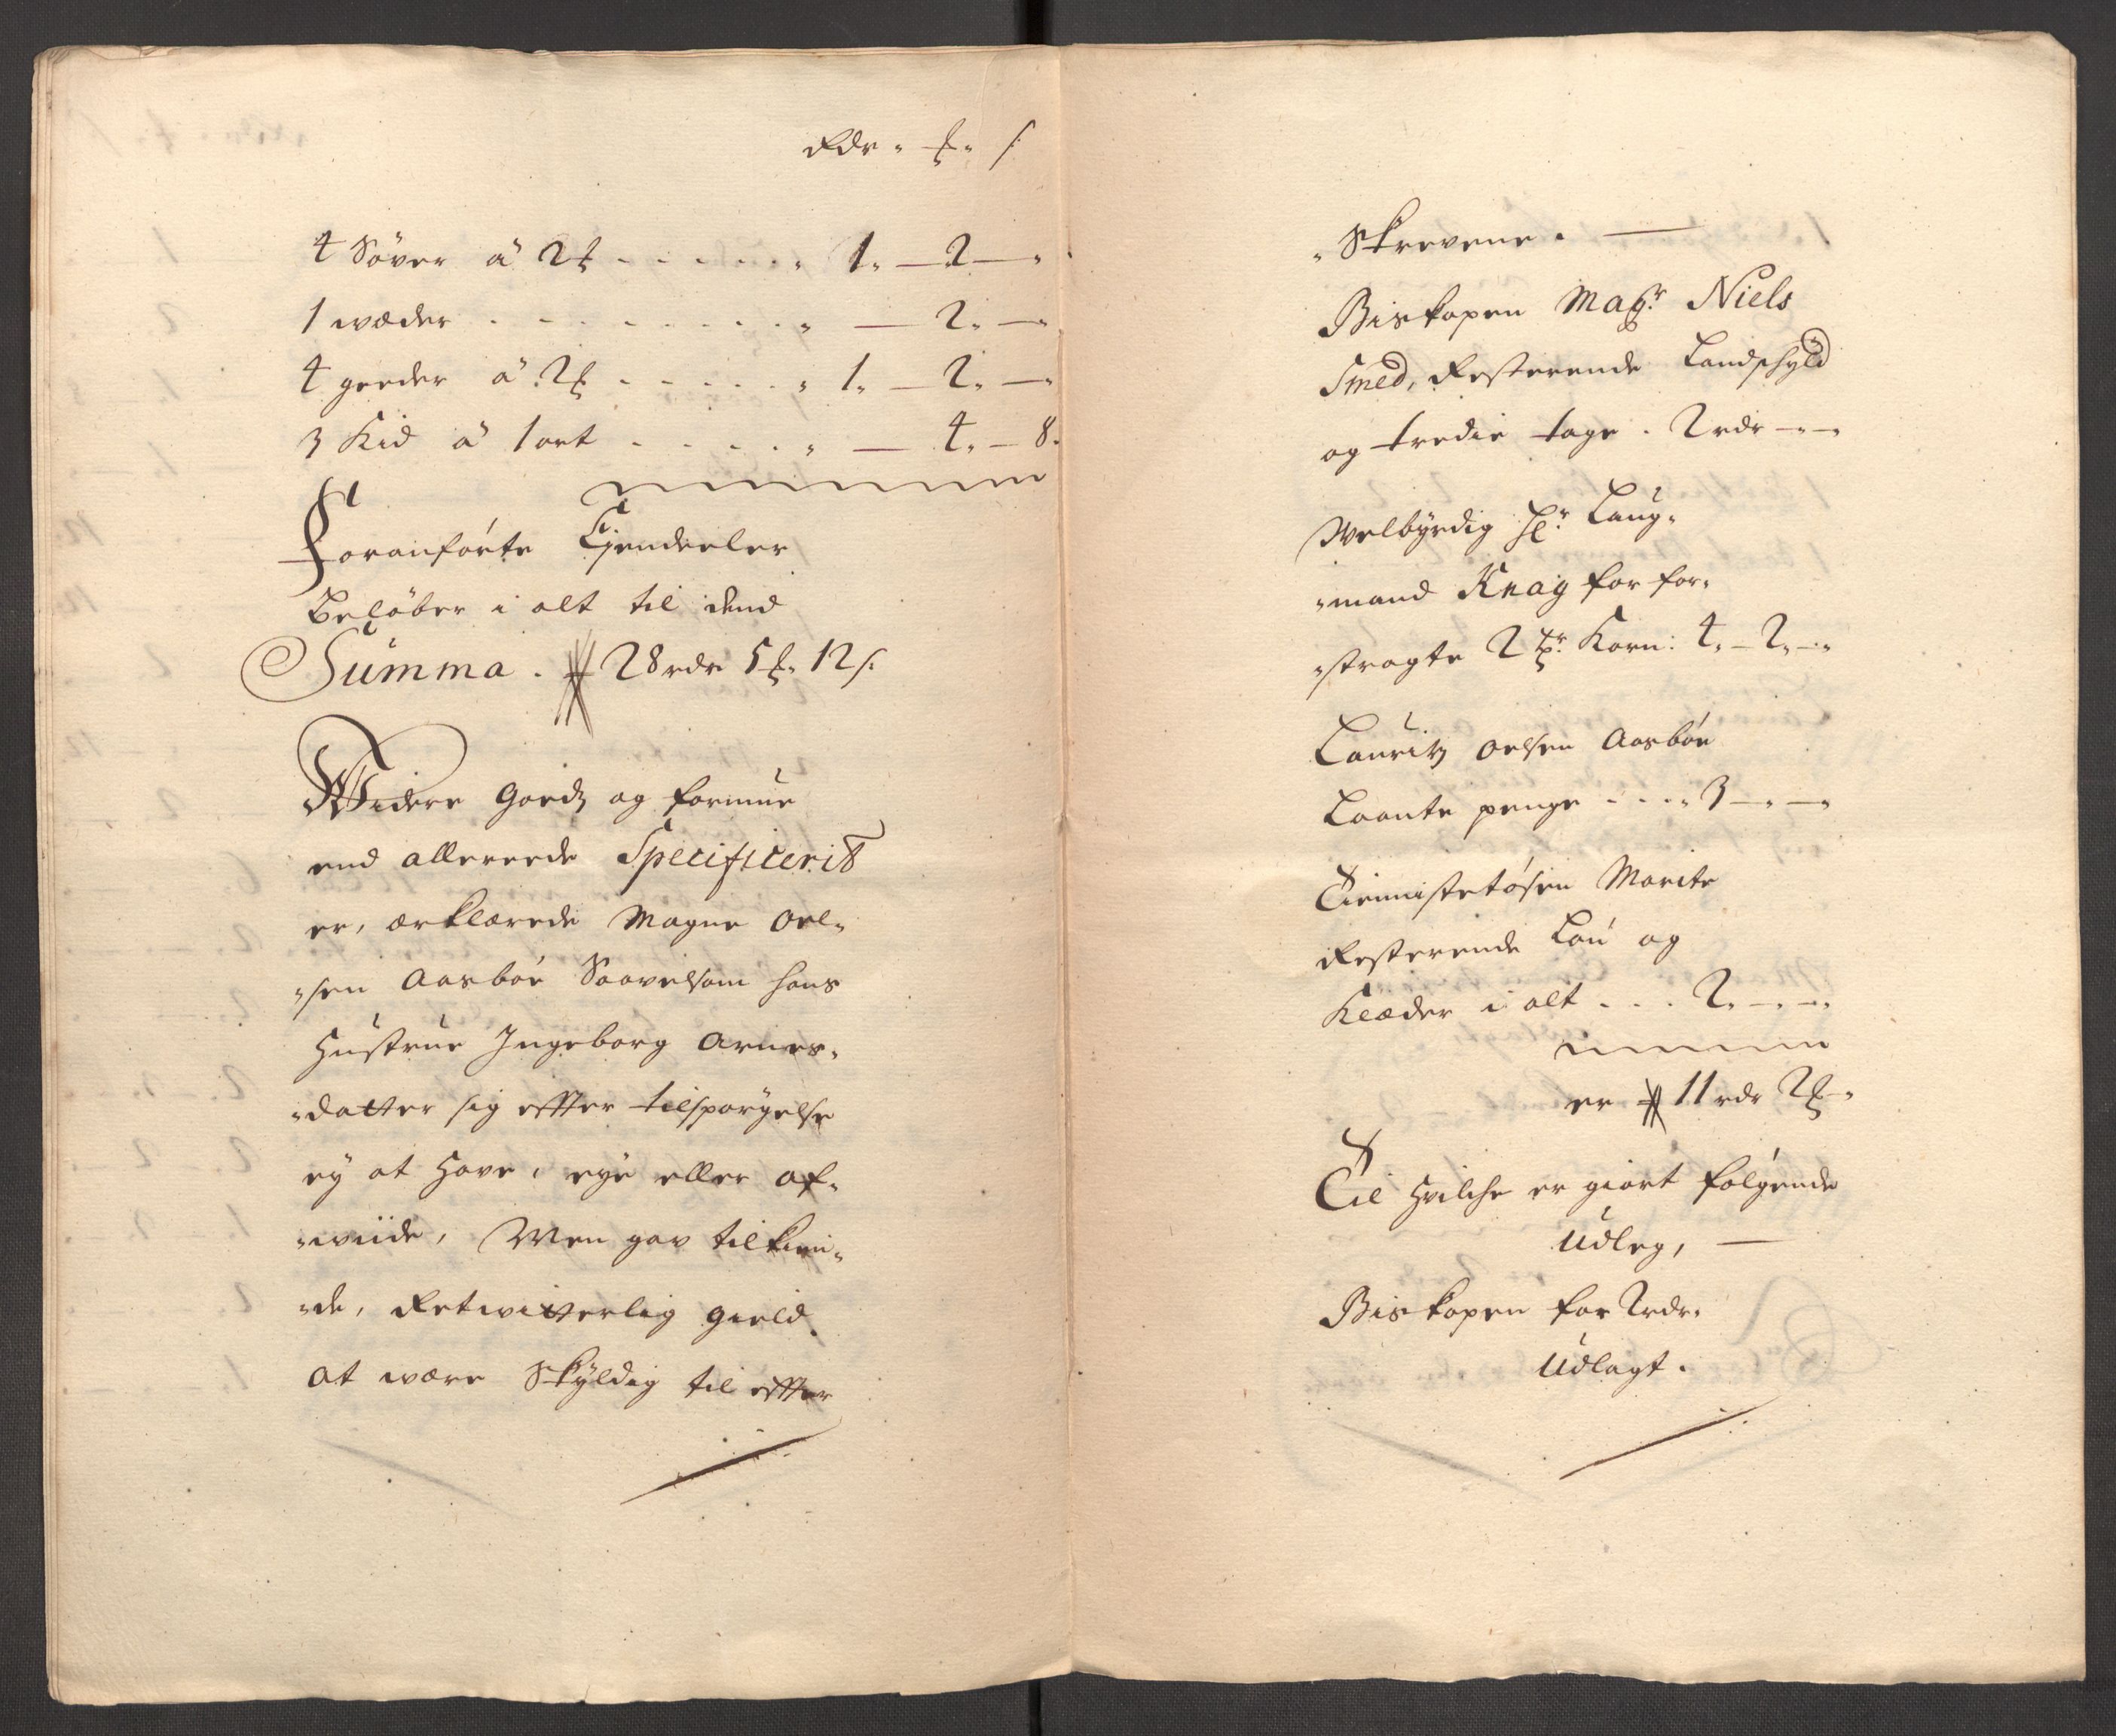 Rdr. ₰. /
4 Söver a 2₰ - - - - - „ 1. – 2 – „
1 wæder - - - - - - - „ – 2. – „
4 geeder a 2₰ - - - - - „ 1. – 2. – „
3 Kid a 1 ort - - - - „ – 4. – 8.
Foranförte Ejendeeler
Belöber i alt til dend
Summa. 28 rdr 5₰. 12 s.
Widere Goedz og formue
end allereede Specificerit
er, ærklærede Magne Oel„
„sen Aasböe Saavelsom hans
Hustrue Ingeborg Arnes„
„datter sig effter tilspörgelse
ey at Have, eye eller af„
„wiide, Men gav tilkien„
„de, Retwitterlig gield
at være Skÿldig til effter
„Skrevene. —
Biskopen Magr. Niels
Smed, Resterende Landschÿld
og tredie tage. 2 rdr – „ –„
Welbÿrdig Hr. Laug„
„mand Knag for for„
„stragte 2 Tr. Korn: 4. – 2. – „
Lauritz Oelsen Aasböe
Laante penge - - - „ 3 – „ – „
Tienistetösen Marite
Resterende Lön og
Klæder i alt - - - 2. – „ – „
er 11 rdr 2₰ „
Til Hvilche er giort fölgende
Udleg, —
Biskopen for 2 rdr.
Udlagt.